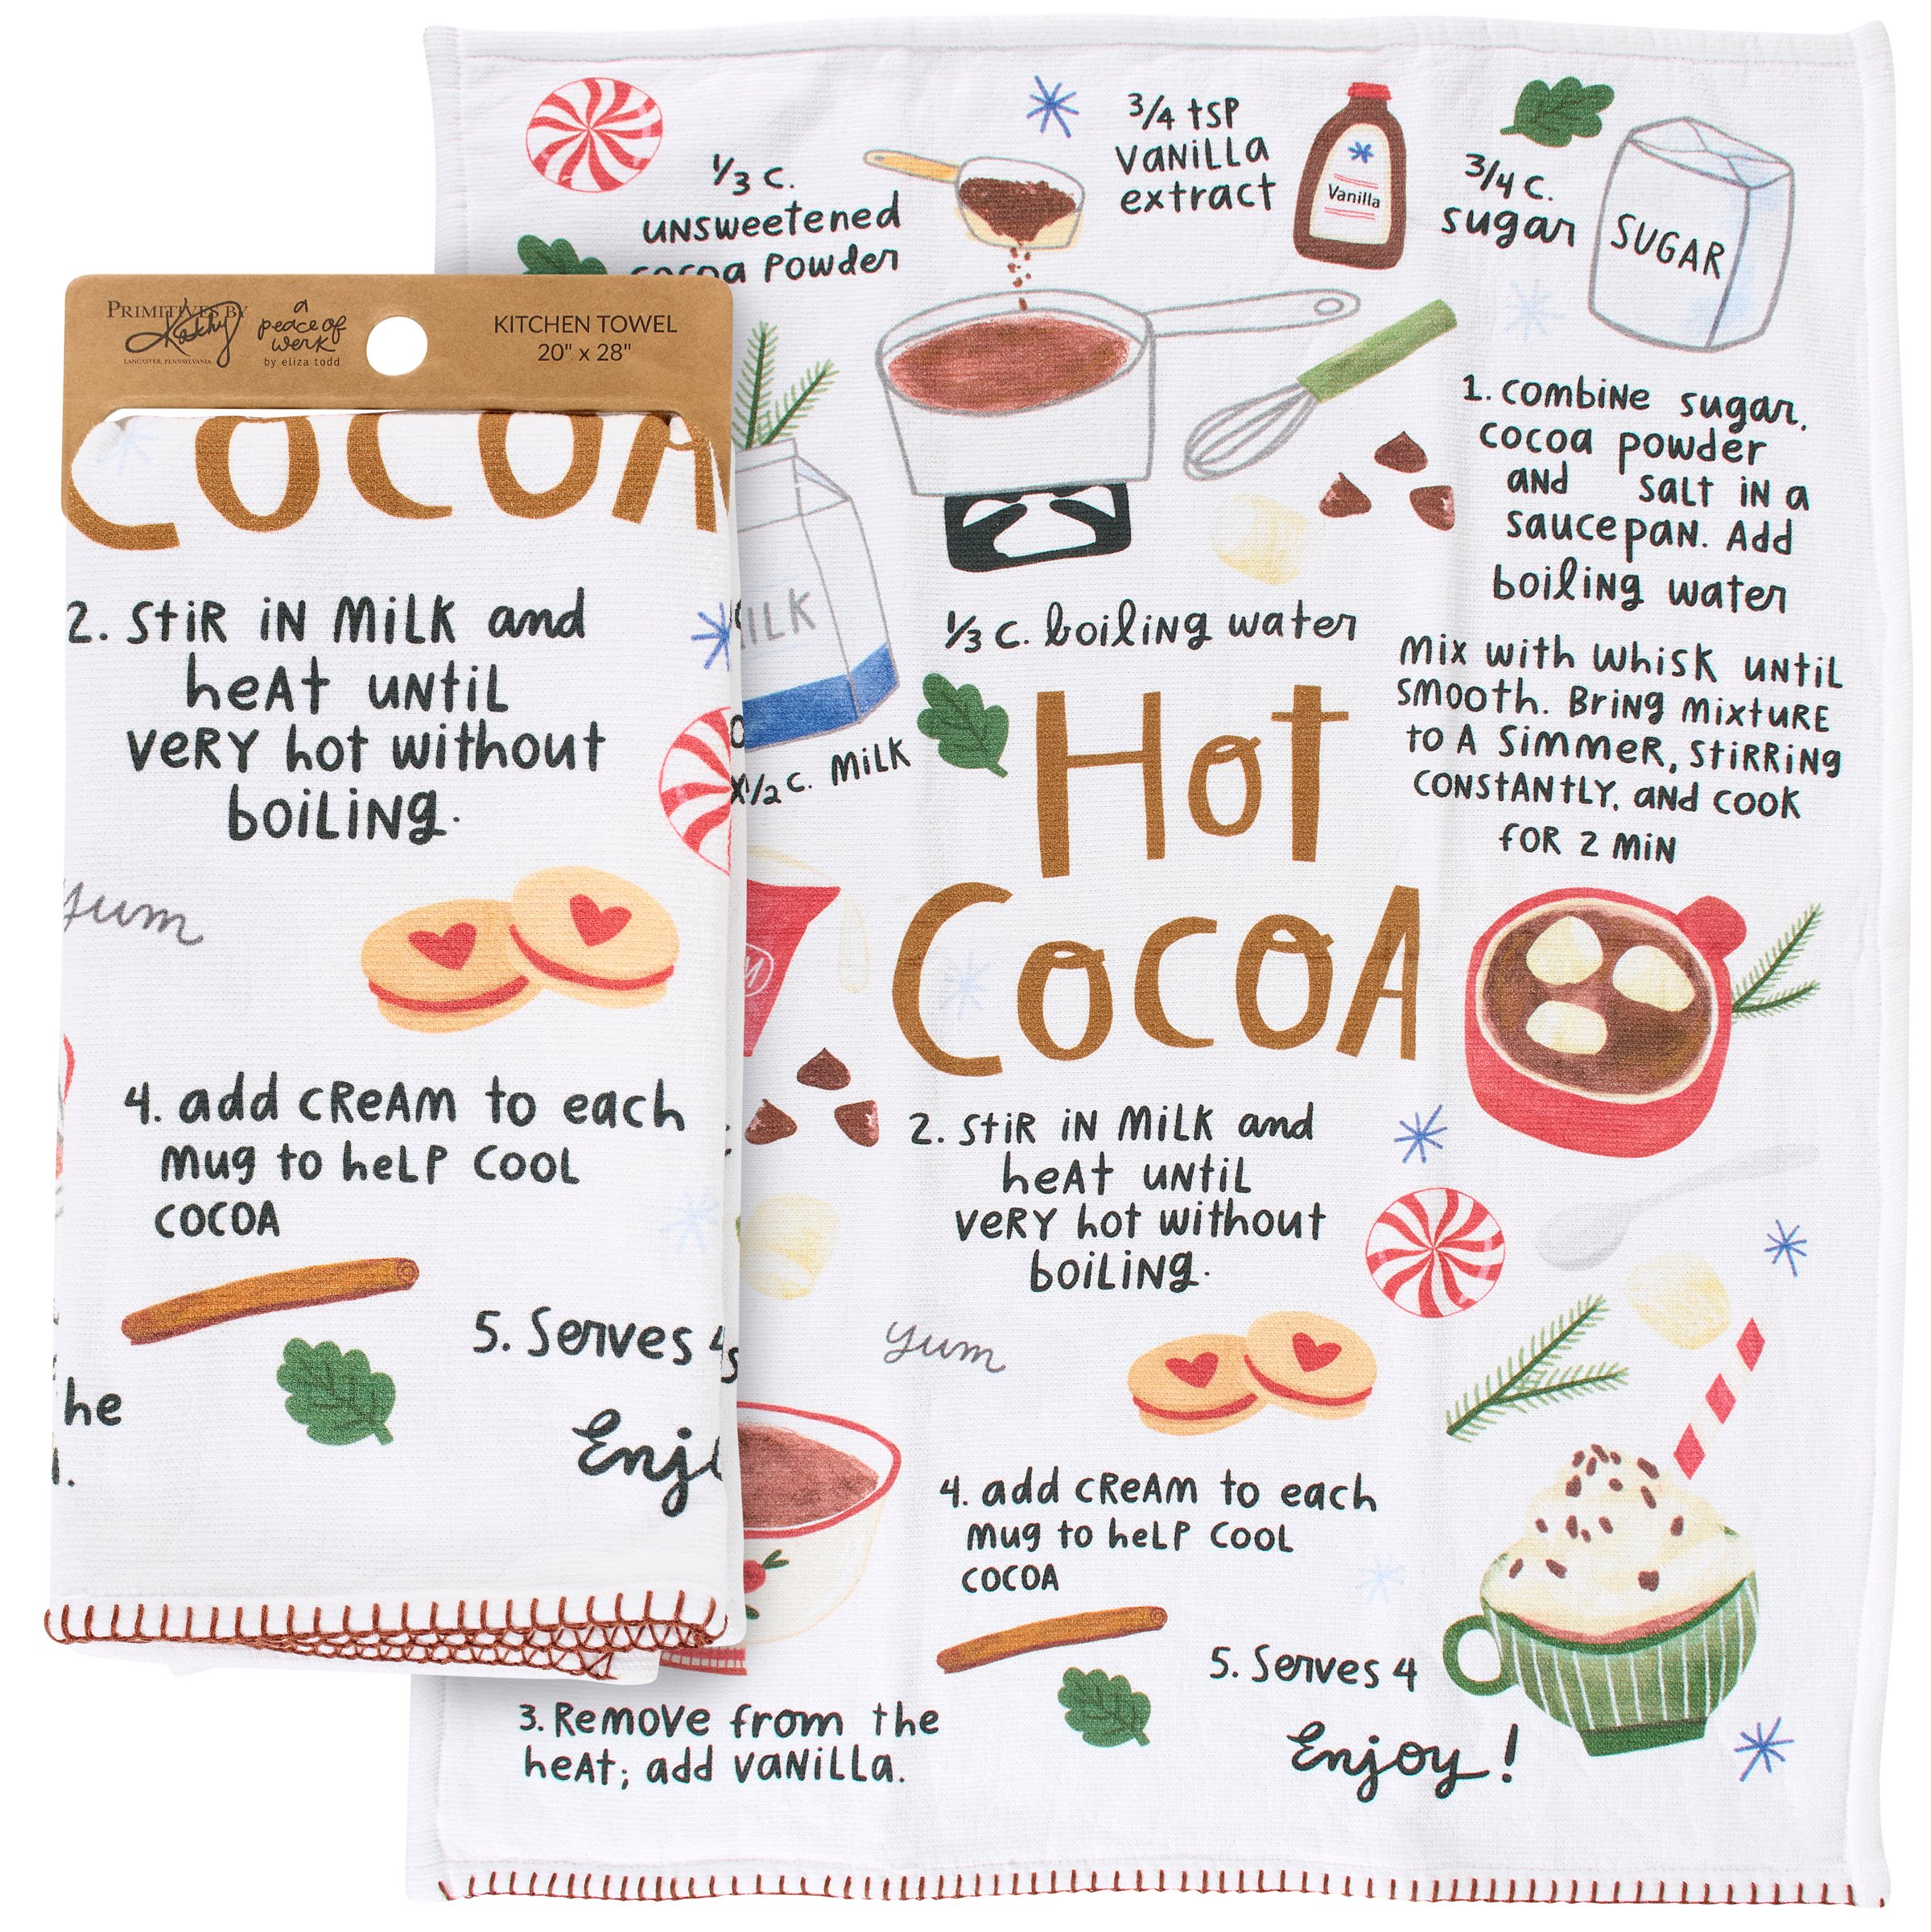 PRIMITIVES BY
Kathy
LANCASTER, PENNSYLVANIA
a
peace of
werk
by eliza todd
KITCHEN TOWEL
20" x 28"
COCOA
2. Stir in milk and
heat until
very hot without
boiling.
yum
4. add cream to each
mug to help cool
cocoa
5. Serves 4
he
1/3 c.
unsweetened
cocoa powder
3/4 tsp
vanilla
extract
Vanilla
3/4 c.
sugar
SUGAR
1. combine sugar,
cocoa powder
and salt in a
saucepan. Add
boiling water
1/3 c. boiling water
mix with whisk until
smooth. Bring mixture
to a simmer, stirring
constantly, and cook
for 2 min
1/2 c. milk
Hot
Cocoa
2. Stir in milk and
heat until
very hot without
boiling.
yum
4. add cream to each
mug to help cool
cocoa
5. Serves 4
Enjoy!
3. Remove from the
heat; add vanilla.